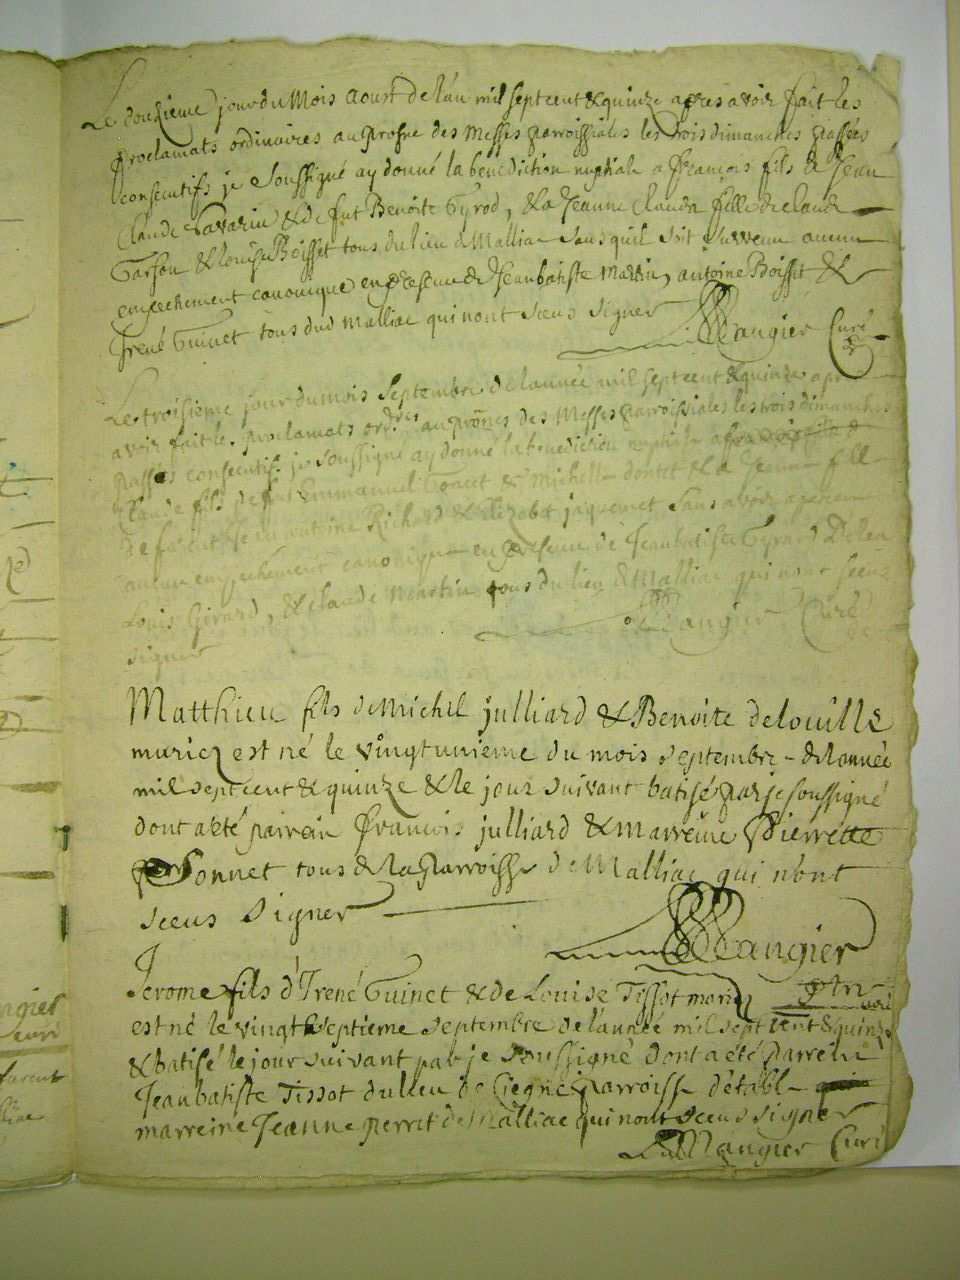 Le douzieme jour du Mois Aoust de l'an mil sept cent & quinze apres avoir fait les
proclamats ordinaires au prosne des Messes parroissiales les trois dimanches passées
consecutifs je soussigné ay donné la benediction nuptiale a François fils de Jean
Claude Savarin & de fut Benoite Gyrod, & a Jeanne Clauda fille de Claude
& Louise Boisset tous du lieu de Malliac sans quil soit survenu aucun
empechement canonique en presence de Jeanbatiste Martin, antoine Boisset &
Irené Guinet tous dud Malliac qui nont sceus signer Mangier Curé
Le troisieme jour du mois Septembre de lannée mil sept cent & quinze apr
avoir fait les proclamats ord.res au prônes des Messes parroissiales les trois dimanches
passés consecutifs je soussigné ay donné la benediction nuptiale a
Claude fils de fut Emmanuel & Michelle & a Jeanne fille
de antoine Richard & Elizabet jaquemet sans avoir
aucun empechement canonique en presence de Jeanbatiste Gyrard
Louis Girard, & claude Martin tous du lieu de Malliac qui nont sceus
signer Mangier Curé
Matthieu fils de Michel julliard & Benoite delouille
mariez est né le vingtunieme du mois septembre de lannée
mil sept cent & quinze & le jour suivant batisé par je soussigné
dont a été parrein François julliard & marreine Pierrette
Sonnet tous de la parroisse de Malliac qui nont
sceus signer Mangier
Jerome fils d'Irené Guinet & de Louise Tissot mariez
est né le vingt septieme septembre de l'année mil sept cent & quinze
& batisé le jour suivant par je soussigné dont a été parrein
Jeanbatiste Tissot du lieu de parroisse
marreine Jeanne perret de Malliac qui nont sceus signer
Mangier Curé